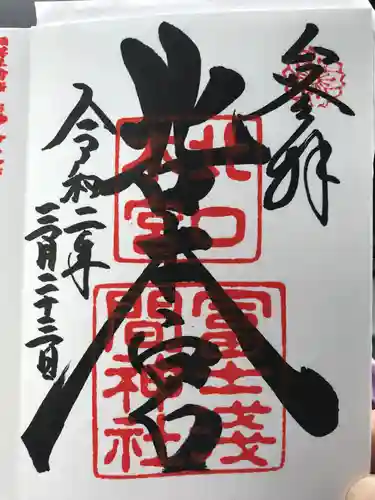 奉拝
北口本宮
令和二年
三月二十三日
北口
本宮
冨士淺
間神社